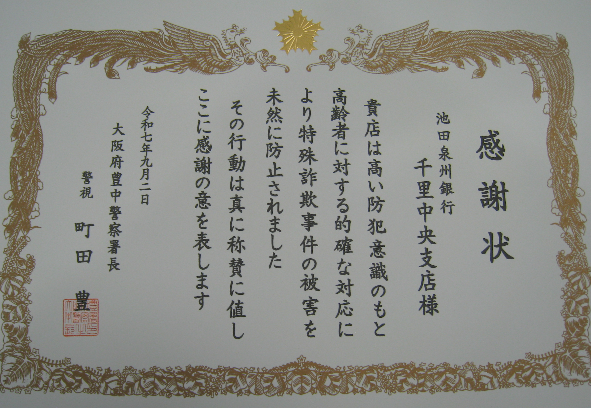 感謝状
池田泉州銀行
千里中央支店様
貴店は高い防犯意識のもと
高齢者に対する的確な対応に
より特殊詐欺事件の被害を
未然に防止されました
その行動は真に称賛に値し
ここに感謝の意を表します
令和七年九月二日
大阪府豊中警察署長
警視 町田 豊